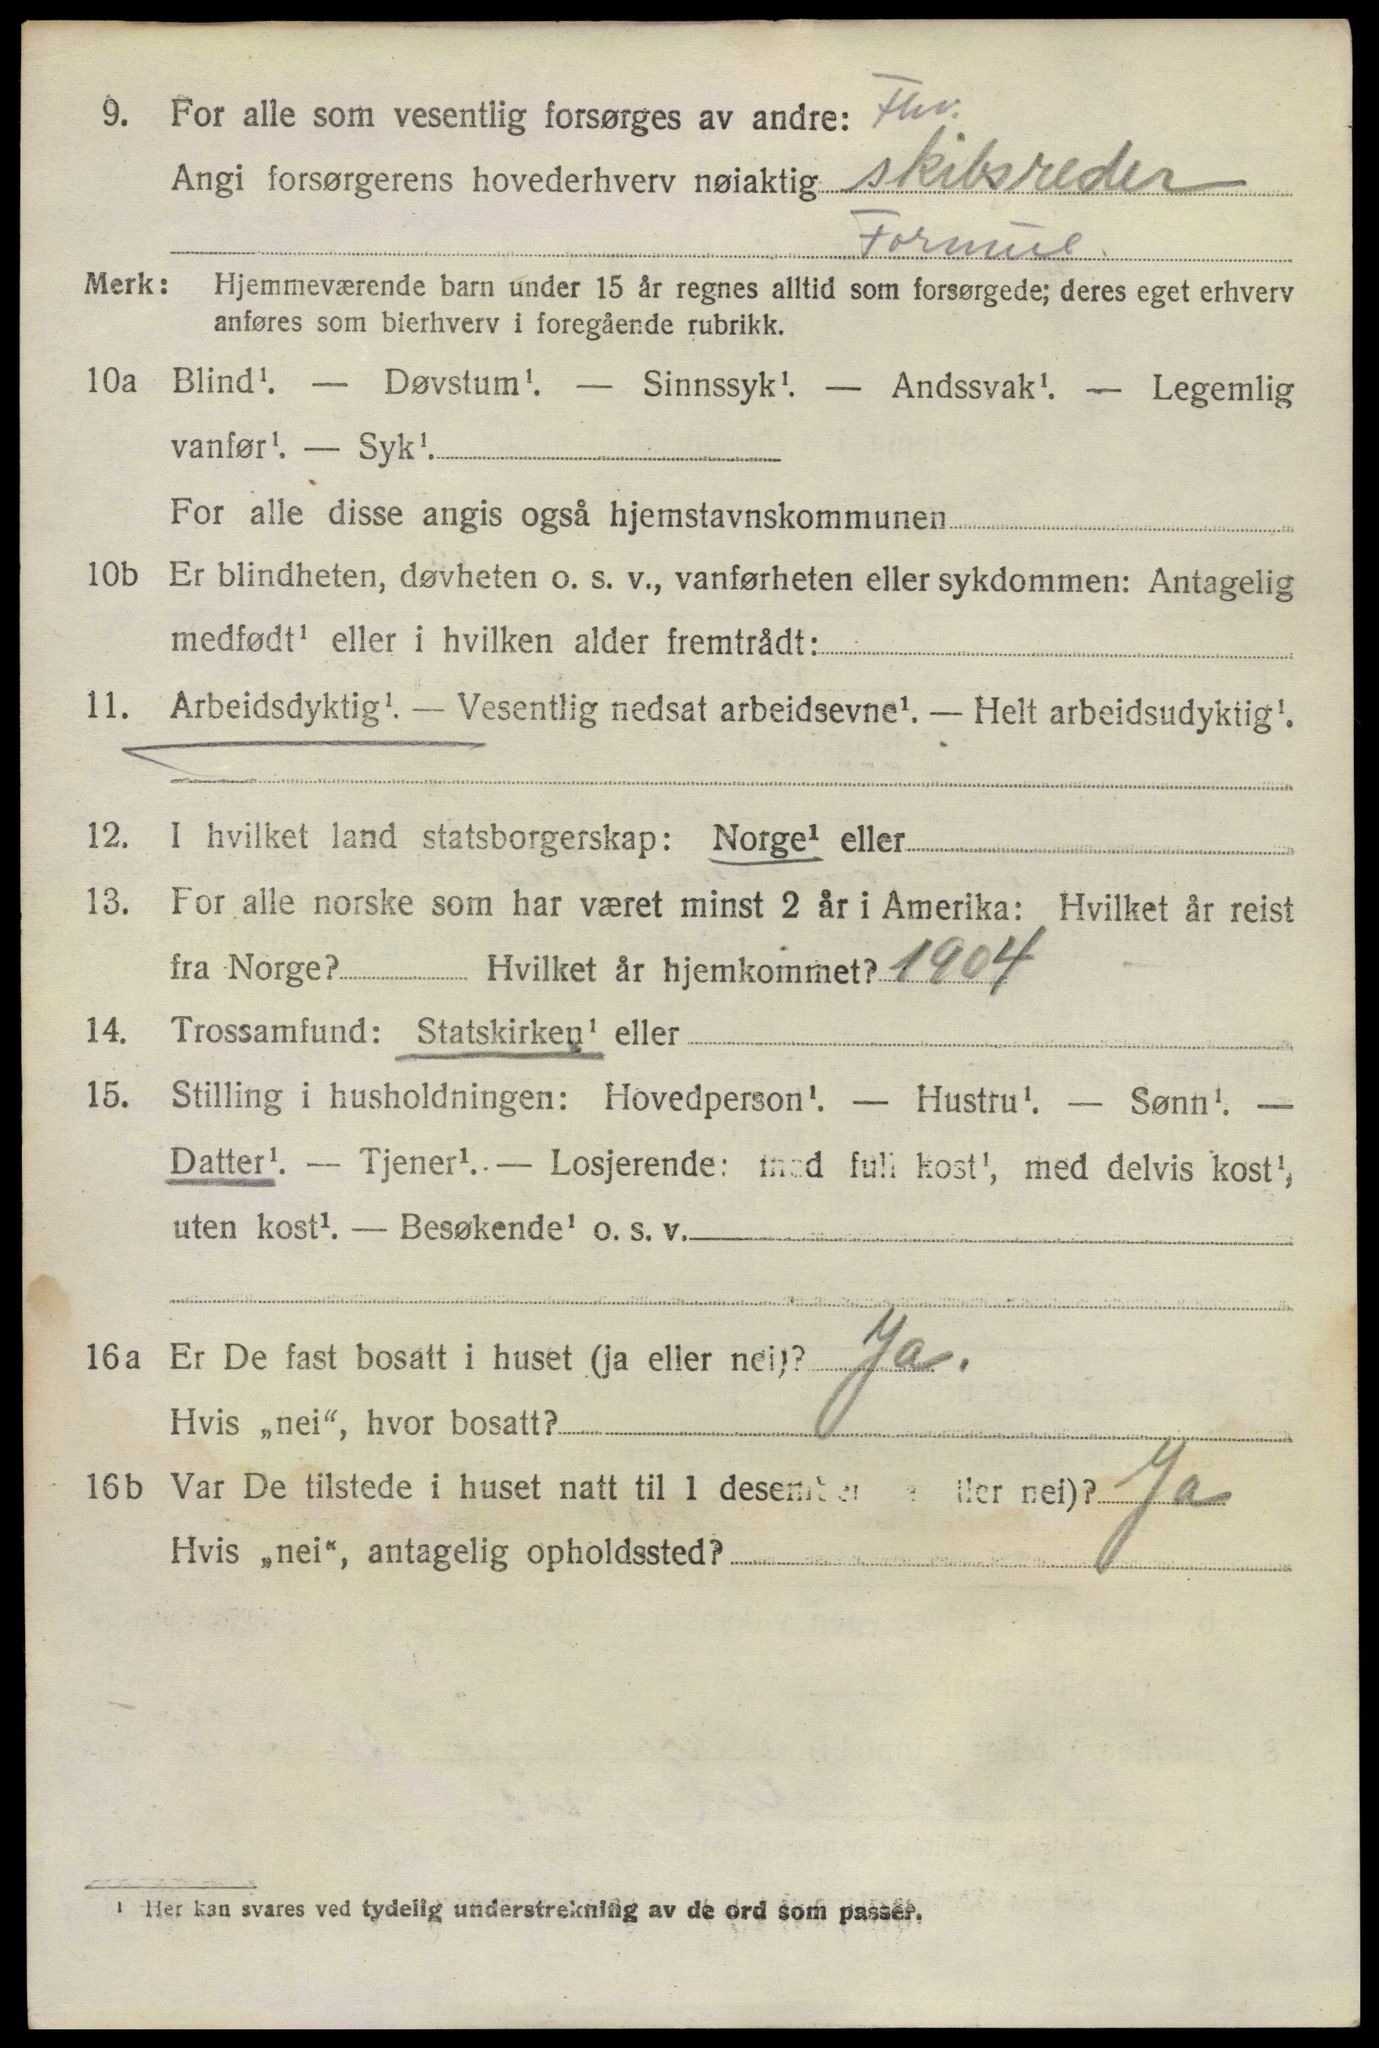 9. For alle som vesentlig forsørges av andre: Fhv.
Angi forsørgerens hovederhverv nøiaktig skibsreder
Formue.
Merk: Hjemmeværende barn under 15 år regnes alltid som forsørgede; deres eget erhverv
anføres som bierhverv i foregående rubrikk.
10a Blind¹. — Døvstum¹. — Sinnssyk¹. — Andssvak¹. — Legemlig
vanfør¹. — Syk¹.
For alle disse angis også hjemstavnskommunen
10b Er blindheten, døvheten o. s. v., vanførheten eller sykdommen: Antagelig
medfødt¹ eller i hvilken alder fremtrådt:
11. Arbeidsdyktig¹. — Vesentlig nedsat arbeidsevne¹. — Helt arbeidsudyktig¹.
12. I hvilket land statsborgerskap: Norge¹ eller
13. For alle norske som har været minst 2 år i Amerika: Hvilket år reist
fra Norge? Hvilket år hjemkommet? 1904
14. Trossamfund: Statskirken¹ eller
15. Stilling i husholdningen: Hovedperson¹. — Hustru¹. — Sønn¹. —
Datter¹. — Tjener¹. — Losjerende: med full kost¹, med delvis kost¹,
uten kost¹. — Besøkende¹ o. s. v.
16a Er De fast bosatt i huset (ja eller nei)? Ja.
Hvis „nei“, hvor bosatt?
16b Var De tilstede i huset natt til 1 desember nei)? Ja
Hvis „nei“, antagelig opholdssted?
¹ Her kan svares ved tydelig understrekning av de ord som passer.